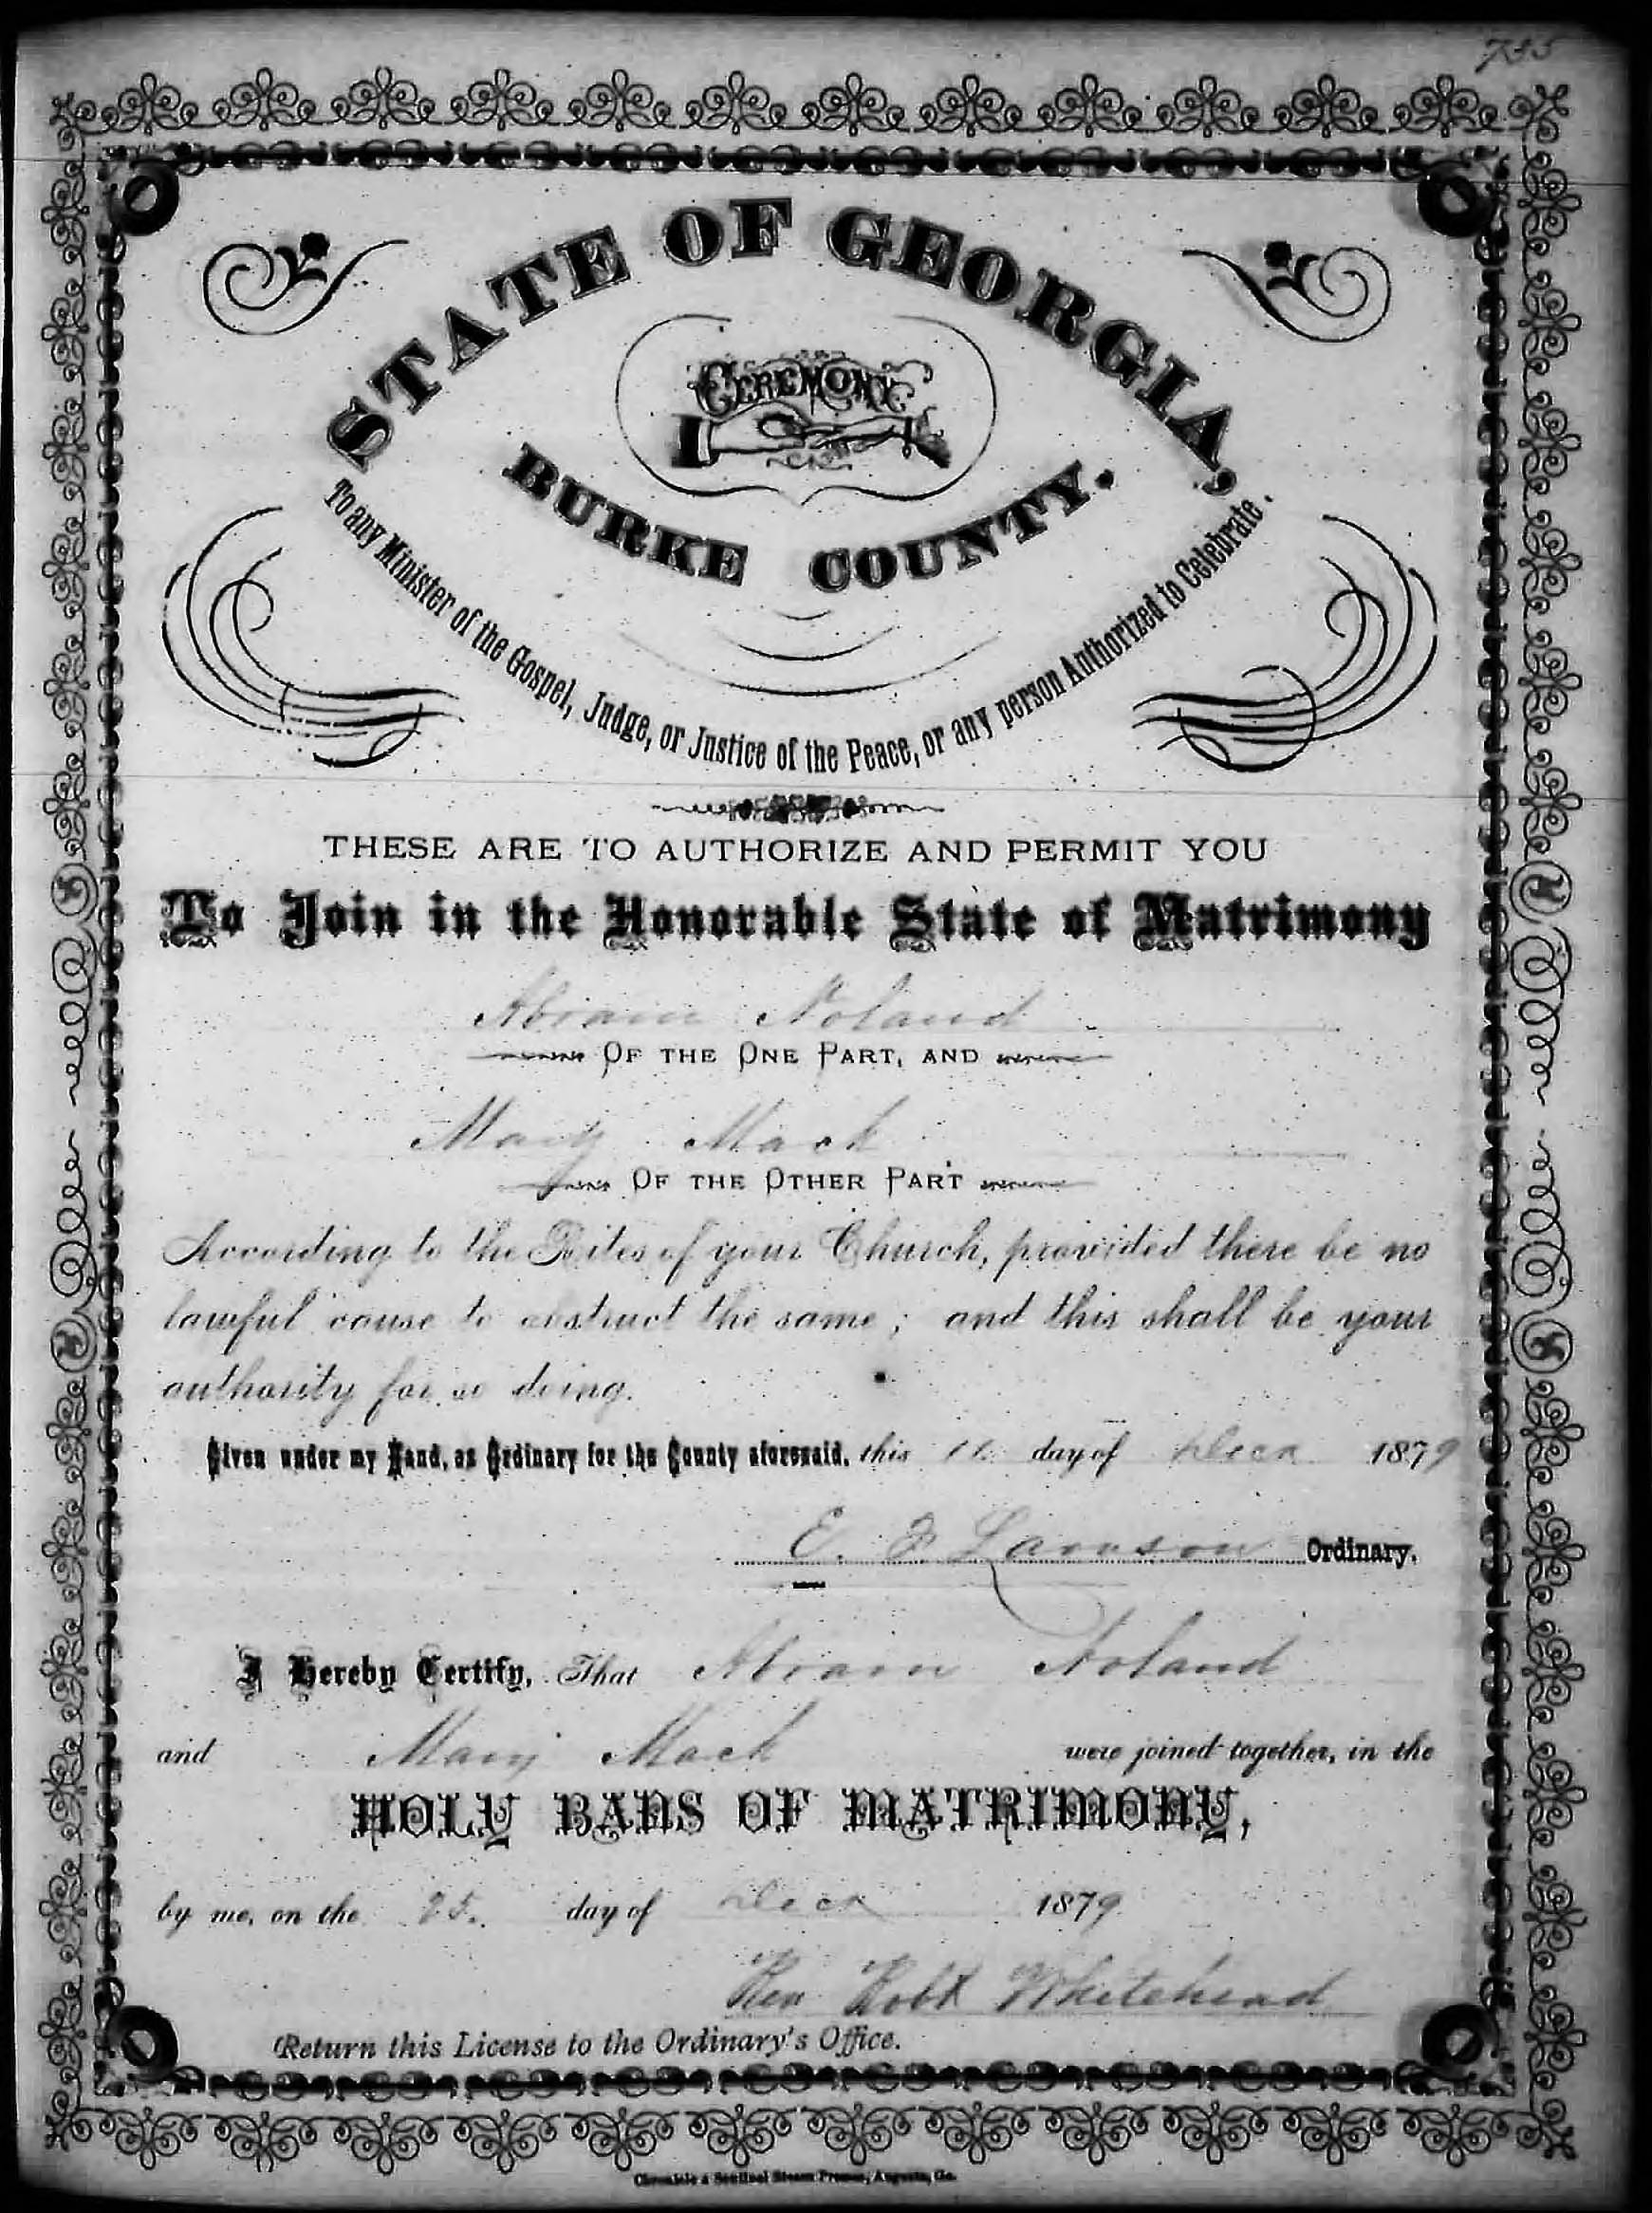 735
STATE OF GEORGIA,
CEREMONY
BURKE COUNTY.
To any Minister of the Gospel, Judge, or Justice of the Peace, or any person Authorized to Celebrate.
THESE ARE TO AUTHORIZE AND PERMIT YOU
To Join in the Honorable State of Matrimony
Abram Noland
OF THE ONE PART, AND
Mary Mack
OF THE OTHER PART
According to the Rites of your Church, provided there be no
lawful cause to obstruct the same; and this shall be your
authority for so doing.
Given under my Hand, as Ordinary for the County aforesaid, this day of Decr 1879
E. F Lawson Ordinary.
I Hereby Certify, That Abram Noland
and Mary Mack were joined together, in the
HOLY BANS OF MATRIMONY,
by me, on the 25. day of Decr 1879
Rev Robt Whitehead
Return this License to the Ordinary's Office.
Chronicle & Sentinel Steam Presses, Augusta, Ga.